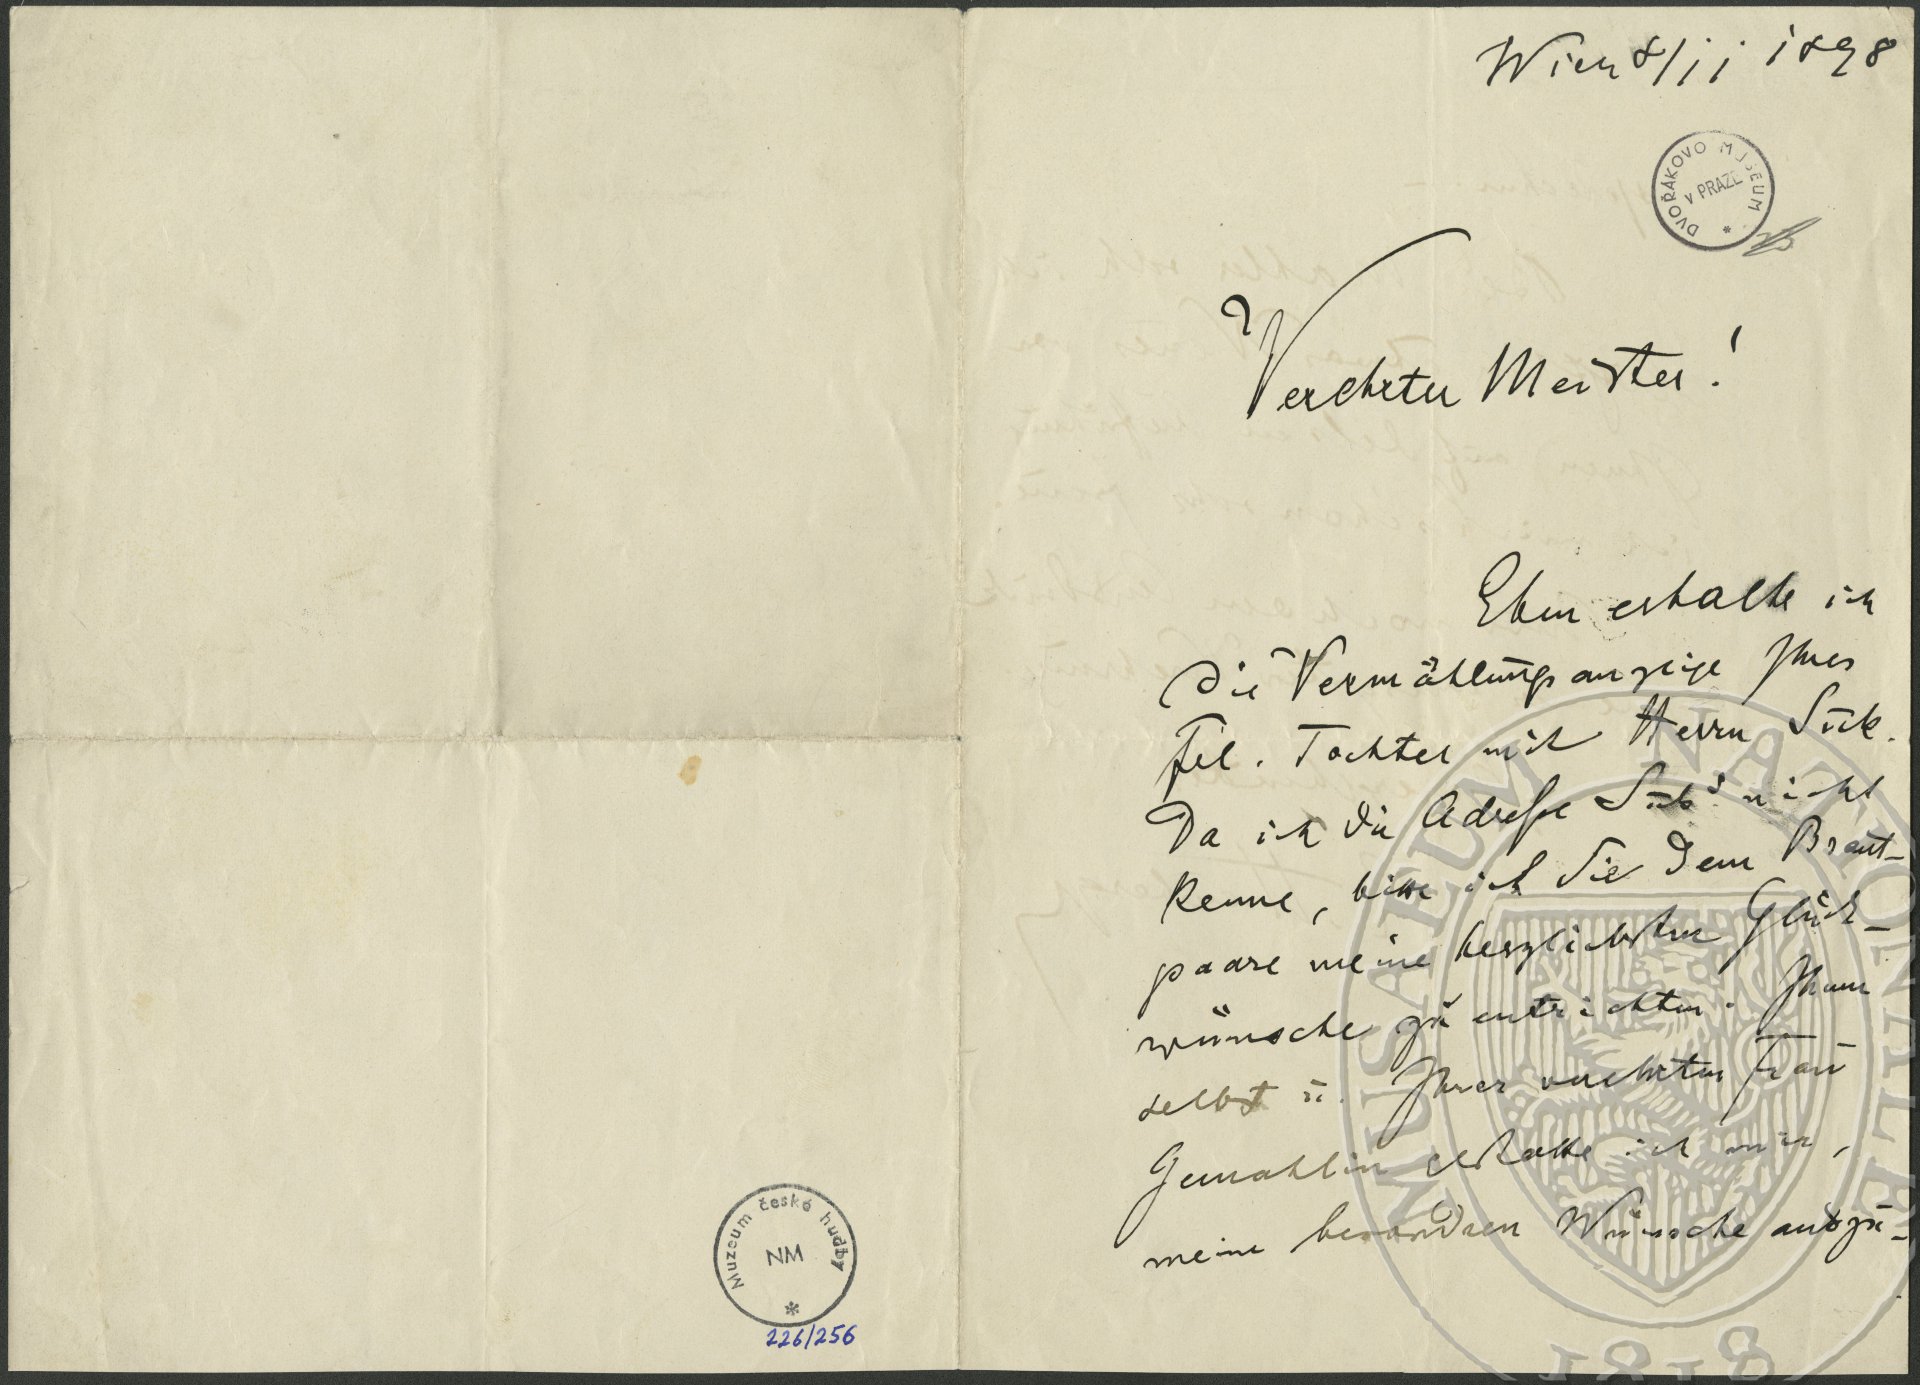 Wien 8/11 1898
DVOŘÁKOVO MUSEUM
V PRAZE
Verehrter Meister!
Eben erhalte ich
die Vermählungsanzeige Ihrer
Frl. Tochter mit Herrn Suk.
Da ich die Adresse Suk's nicht
kenne, bitte ich Sie dem Braut-
paare meine herzlichsten Glück-
wünsche zu entrichten. Ihnen
selbst u. Ihrer verehrten Frau
Gemahlin erlaube ich mir,
meine besondren Wünsche auszu-
Muzeum české hudby
NM
226/256
MUSAEUM NATIONALE
1818